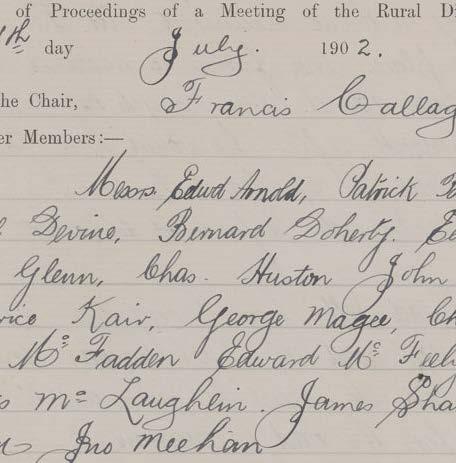 of Proceedings of a Meeting of the Rural Di
th day July. 1902.
the Chair, Francis Callag
er Members:—
Messrs. Edwd Arnold, Patrick
Devine, Bernard Doherty.
Glenn, Chas. Huston John
Kair, George Magee, Ch
Mc Fadden Edward Mc Feel
Mc Laughlin. James Sha
Jno Meehan